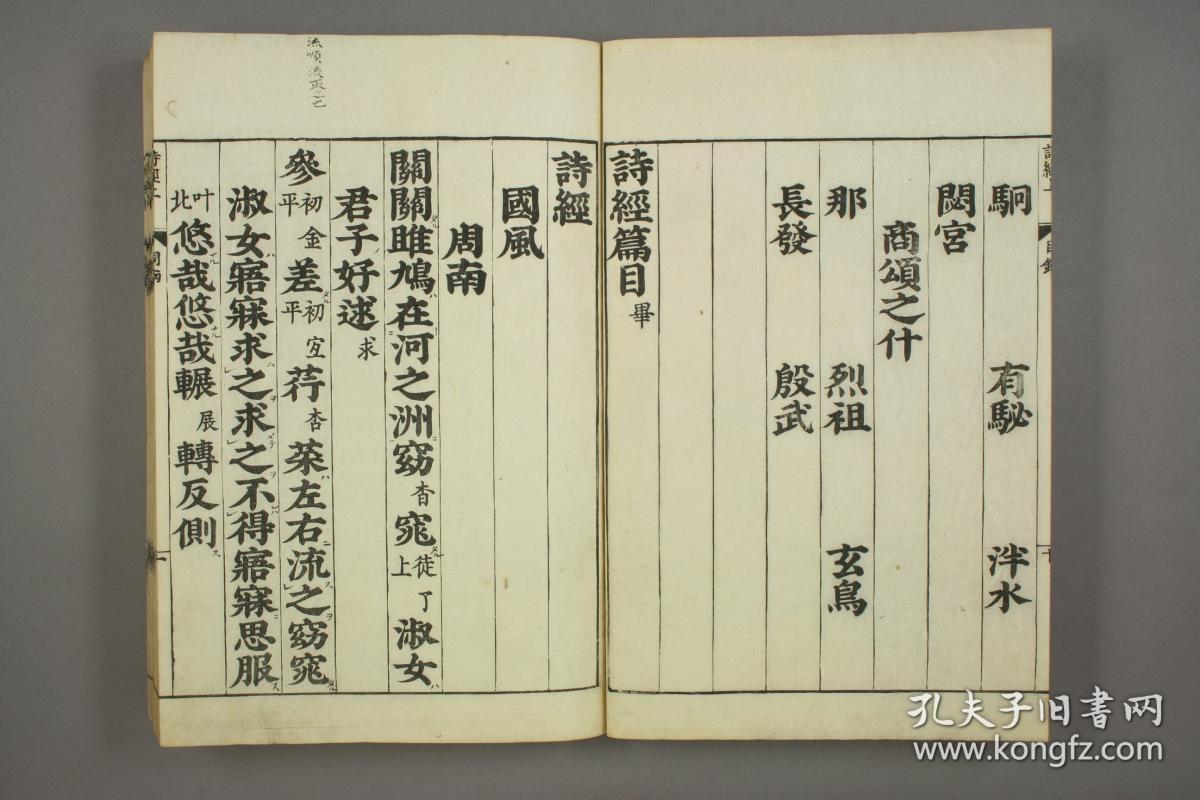 駉 有駜 泮水
閟宮
商頌之什
那 烈祖 玄鳥
長發 殷武
詩經篇目 畢
詩經
國風
周南
關關雎鳩在河之洲窈 杳 窕 徒了上 淑女
君子好逑 求
參 初金平 差 初宜平 荇 杏 菜左右流之窈窕
淑女寤寐求之求之不得寤寐思服
叶北 悠哉悠哉輾 展 轉反側
流順流取之也
孔夫子旧書网
www.kongfz.com